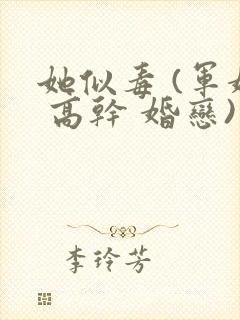 她似毒(軍婚
高幹 婚戀)
李玲芳